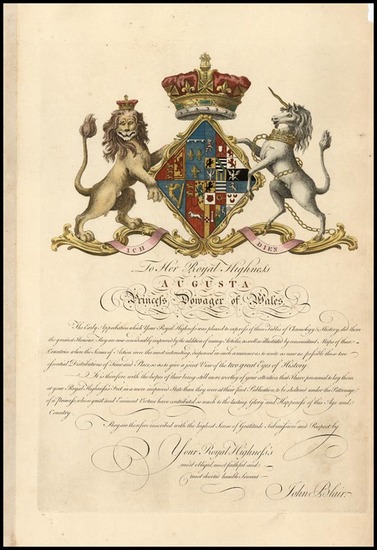 ICH DIEN
To Her Royal Highness
AUGUSTA
Princess Dowager of Wales
The Early Approbation which Your Royal Highness was pleased to express of these Tables of Chronology & History, did them
the greatest Honour. They are now considerably improved by the addition of many Articles, as well as illustrated by concomitant Maps of those
Countries where the Scene of Action were the most interesting, inspired in such a manner as to unite as near as possible those two
essential Distributions of Time and Place, so as to give a joint View of the two great Eyes of History
It is therefore with the hopes of their being still more worthy of your attention that I have presumed to lay them
at your Royal Highness's Feet, in a more improved State than they were at their first Publication, to be sheltered under the Patronage
of a Princess whose great and Eminent Virtues have contributed so much to the lasting Glory and Happiness of this Age and
Country
They are therefore inscribed with the highest Sense of Gratitude, Submission and Respect by
Your Royal Highness's
most obliged, most faithful and
most devoted humble Servant
John Blair.